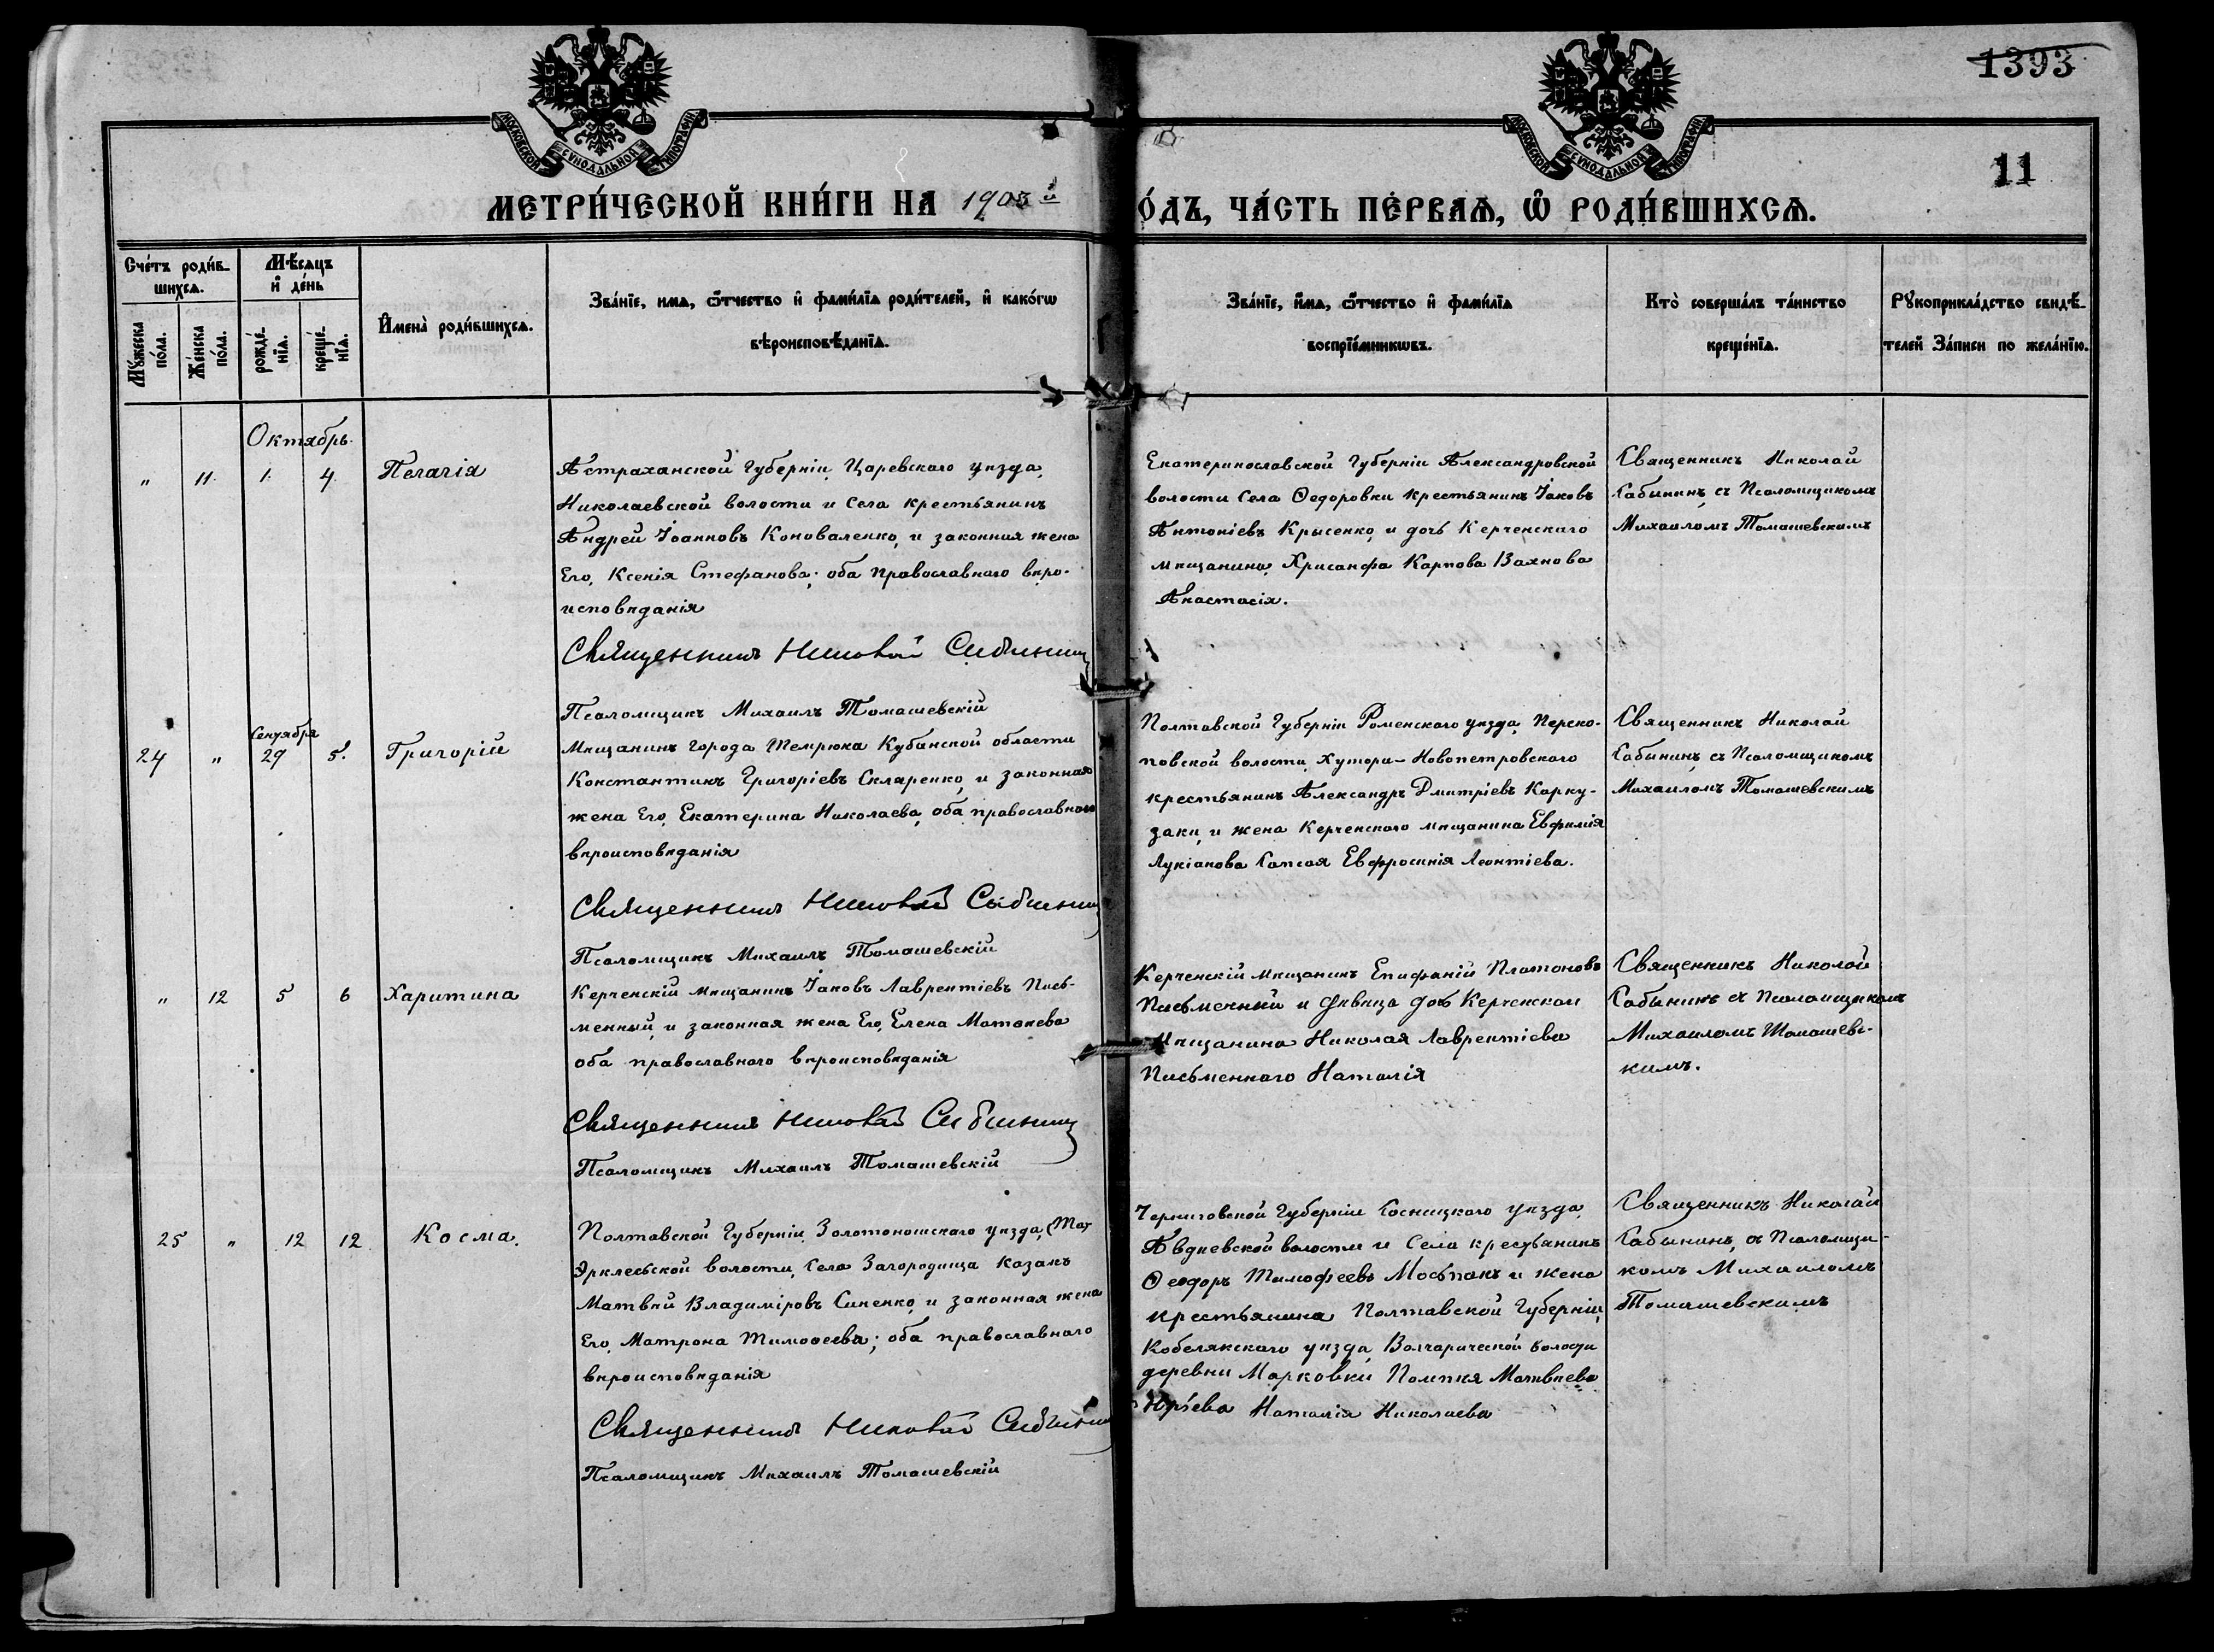 1393
11
МОСКОВСКОЙ СУНОДАЛЬНОЙ ТИПОГРАФІИ
МОСКОВСКОЙ СУНОДАЛЬНОЙ ТИПОГРАФІИ
МЕТРИ́ЧЕСКОЙ КНИ́ГИ НА 1903й
О́ДЪ, ЧА́СТЬ ПЕ́РВАѦ, Ѡ҆ РОДИ́ВШИХСѦ.
Сче́тъ роди́в-
шихсѧ.
Мꙋ́жеска
по́ла.
Же́нска
по́ла.
Мѣ́сѧцъ
и҆ де́нь
рожде́-
нїѧ.
креще́-
нїѧ.
И҆мена̀ роди́вшихсѧ.
Зва́нїе, имѧ, ѻ҆́тчество и҆ фами́лїѧ роди́телей, и҆ како́гѡ
вѣроисповѣ́данїѧ.
Зва́нїе, и҆́мѧ, ѻ҆́тчество и҆ фами́лїѧ
воспрїе́мникѡвъ.
Кто̀ соверша́лъ та́инство
креще́нїѧ.
Рꙋкоприкла́дство свидѣ́-
телей За́писи по жела́нїю.
Октябрь
„ 11. 1. 4. Пелагія
Астраханской Губерніи, Царевскаго уѣзда,
Николаевской волости и села крестьянинъ
Андрей Іоанновъ Коноваленко, и законная жена
Его, Ксенія Стефанова; оба православнаго вѣро-
исповѣданія
Священникъ Николай Сабынинъ
Псаломщикъ Михаилъ Томашевскій
Екатеринославской Губерніи Александровской
волости села Ѳедоровки крестьянинъ Іаковъ
Антоніевъ Крысенко, и дочь Керченскаго
мѣщанина, Хрисанфа Карпова Вахнова
Анастасія.
Священникъ Николай
Сабынинъ, съ Псаломщикомъ
Михаиломъ Томашевскимъ
24 „ Сентября 29 5. Григорій
Мѣщанинъ города Темрюка Кубанской области
Константинъ Григоріевъ Скляренко, и законная
жена Его, Екатерина Николаева, оба православнаго
вѣроисповѣданія
Священникъ Николай Сабынинъ
Псаломщикъ Михаилъ Томашевскій
Полтавской Губерніи Роменскаго уѣзда, Переко-
повской волости, Хутора-Новопетровскаго
крестьянинъ Александръ Дмитріевъ Карку-
заки, и жена Керченскаго мѣщанина Евфимія
Лукіанова Евфросинія Леонтіева.
Священникъ Николай
Сабынинъ, съ Псаломщикомъ
Михаиломъ Томашевскимъ
„ 12 5 6 Харитина
Керченскій мѣщанинъ Іаковъ Лаврентіевъ Пись-
менный, и законная жена Его, Елена
оба православнаго вѣроисповѣданія
Священникъ Николай Сабынинъ
Псаломщикъ Михаилъ Томашевскій
Керченскій мѣщанинъ Епифаній Платоновъ
Письменный и дѣвица дочь Керченскаго
Мѣщанина Николая Лаврентіева
Письменнаго Наталія
Священникъ Николай
Сабынинъ съ Псаломщикомъ
Михаиломъ Томашевс-
кимъ.
25 „ 12 12 Косма.
Полтавской Губерніи, Золотоношскаго уѣзда,
Эрклевской волости, села Загородища Казакъ
Матвѣй Владиміровъ Синенко, и законная жена
Его, Матрона Тимоѳеева; оба православнаго
вѣроисповѣданія
Священникъ Николай Сабынинъ
Псаломщикъ Михаилъ Томашевскій
Черниговской Губерніи Сосницкаго уѣзда,
Авдѣевской волости и села крестьянинъ
Ѳеодоръ Тимофеевъ Мосьпанъ и жена
крестьянина Полтавской Губерніи,
Кобелякскаго уѣзда, волости
деревни Марковки Матвѣева
Юрьева Наталія Николаева
Священникъ Николай
Сабынинъ, съ Псаломщи-
комъ Михаиломъ
Томашевскимъ